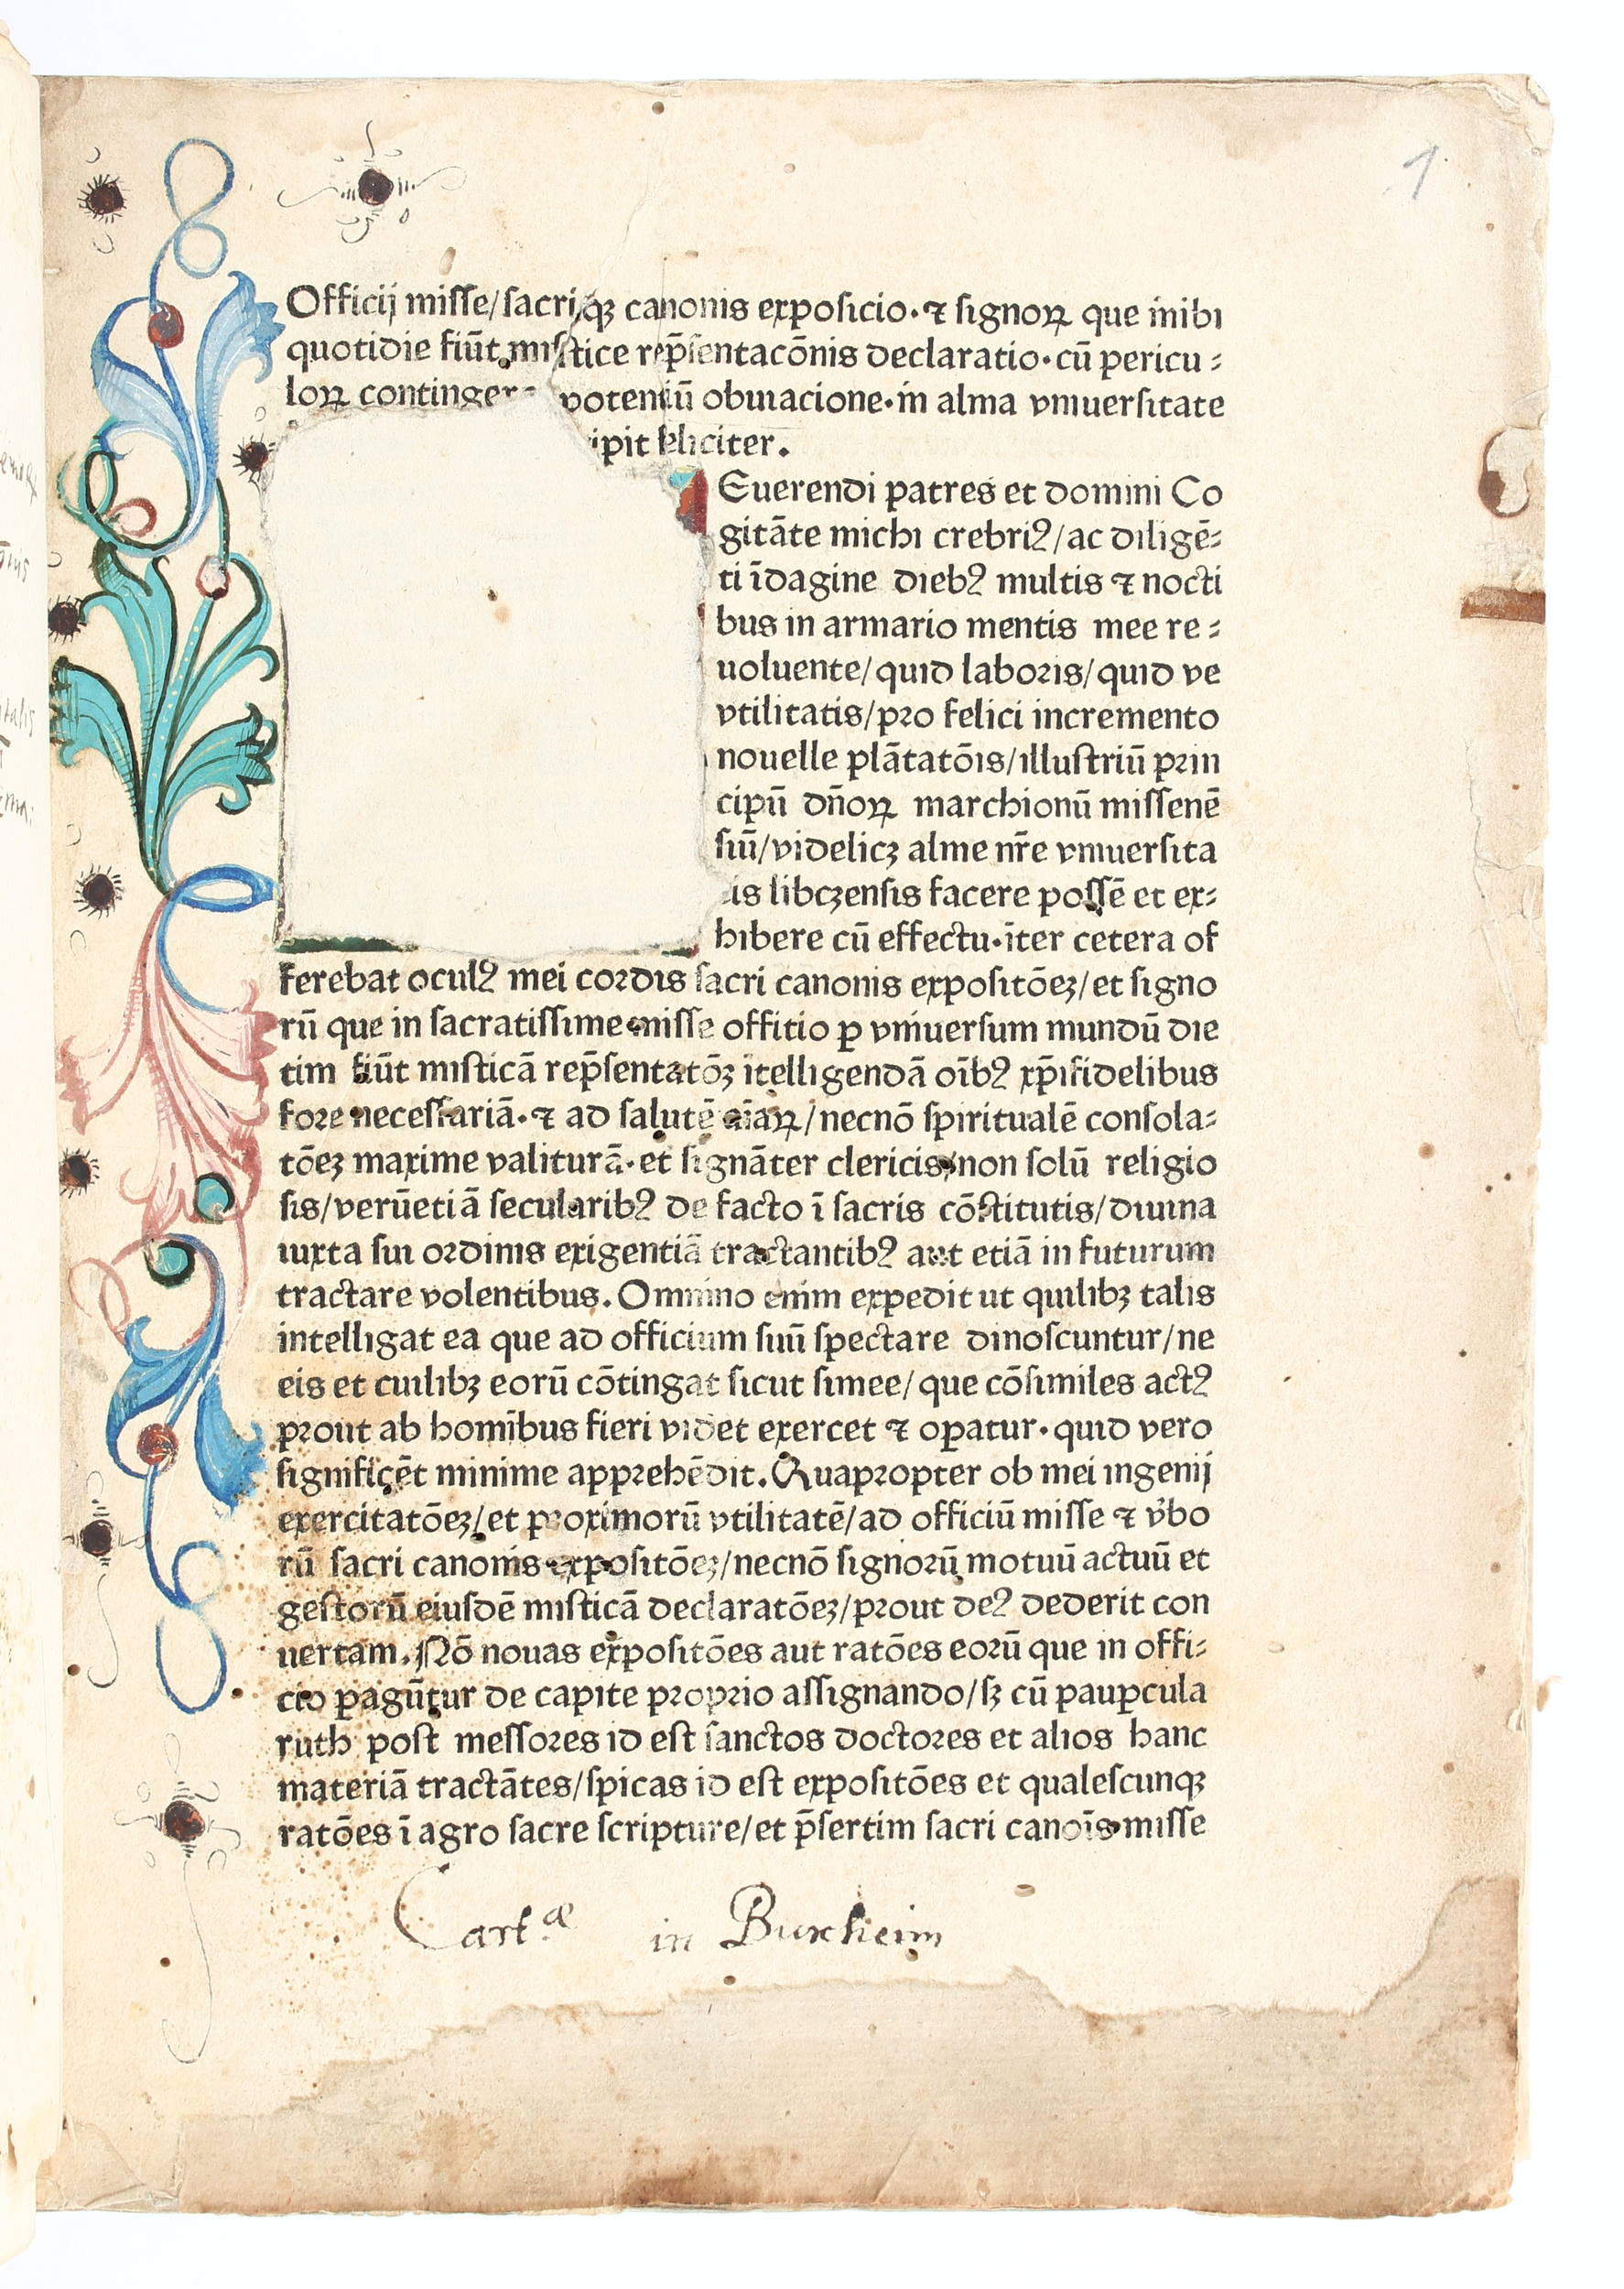 1
Officij misse/sacriqꝫ canonis exposicio·⁊ signoꝝ que inibi
quotidie fiūt mistice rep̄sentacōnis declaratio·cū pericu⸗
loꝝ contingere potentiū obuiacione·in alma vniuersitate
ipit feliciter.
Euerendi patres et domini Co
gitāte michi crebriꝰ/ac diligē⸗
ti īdagine diebꝰ multis ⁊ nocti
bus in armario mentis mee re⸗
uoluente/quid laboris/quid ve
vtilitatis/pro felici incremento
nouelle plātatōis/illustriū prin
cipū dn̄oꝝ marchionū missenē
siū/videlicꝫ alme nr̄e vniuersita
is libcꝫensis facere possē et ex⸗
hibere cū effectu·īter cetera of
ferebat oculꝰ mei cordis sacri canonis expositōeꝫ/et signo
rū que in sacratissime misse offitio ꝑ vniuersum mundū die
tim fiūt misticā rep̄sentatōꝫ ītelligendā oībꝰ xp̄ifidelibus
fore necessariā·⁊ ad salutē aīaꝝ/necnō spiritualē consola⸗
tōeꝫ maxime valiturā·et signāter clericis/non solū religio
sis/verūetiā secularibꝰ de facto ī sacris cōstitutis/diuina
iuxta sui ordinis exigentiā tractantibꝰ aut etiā in futurum
tractare volentibus. Omnino enim expedit ut quilibꝫ talis
intelligat ea que ad officium suū spectare dinoscuntur/ne
eis et cuilibꝫ eorū cōtingat sicut simee/que cōsimiles actꝰ
prout ab homībus fieri videt exercet ⁊ oꝑatur·quid vero
significēt minime apprehēdit. Quapropter ob mei ingenij
exercitatōeꝫ/et proximorū vtilitatē/ad officiū misse ⁊ v̓bo
rū sacri canonis expositōeꝫ/necnō signorū motuū actuū et
gestorū eiusdē misticā declaratōeꝫ/prout deꝰ dederit con
uertam. Nō nouas expositōes aut ratōes eorū que in offi⸗
cio ꝑagūtur de capite proprio assignando/sꝫ cū pauꝑcula
ruth post messores id est sanctos doctores et alios hanc
materiā tractātes/spicas id est expositōes et qualescunqꝫ
ratōes ī agro sacre scripture/et p̄sertim sacri canoīs misse
Cart.æ in Buxheim